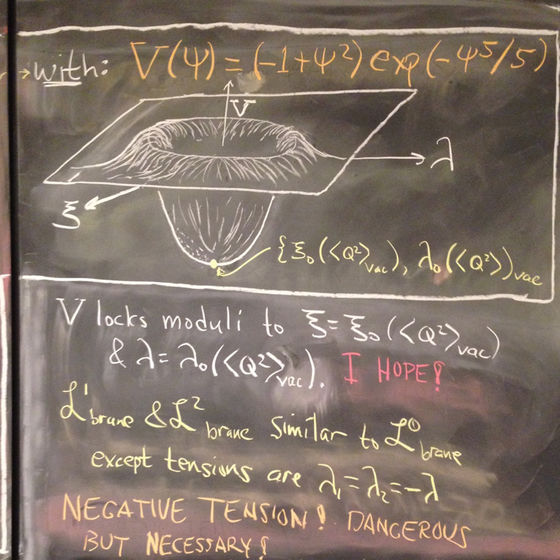 →with: V(Ψ) = (-1+Ψ²) exp(-Ψ⁵/5)
V
λ
ξ
{ξ₀(<Q²>vac), λ₀(<Q²>)vac
V locks moduli to ξ=ξ₀(<Q²>vac)
& λ=λ₀(<Q²>vac). I HOPE!
ℒ¹brane & ℒ²brane similar to ℒ⁰brane
except tensions are λ₁=λ₂=-λ
NEGATIVE TENSION! DANGEROUS
BUT NECESSARY!